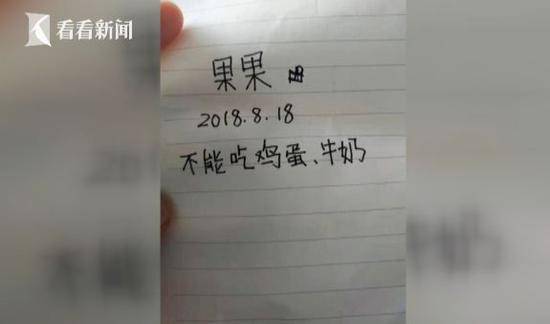 看看新闻
果果
2018.8.18
不能吃鸡蛋、牛奶